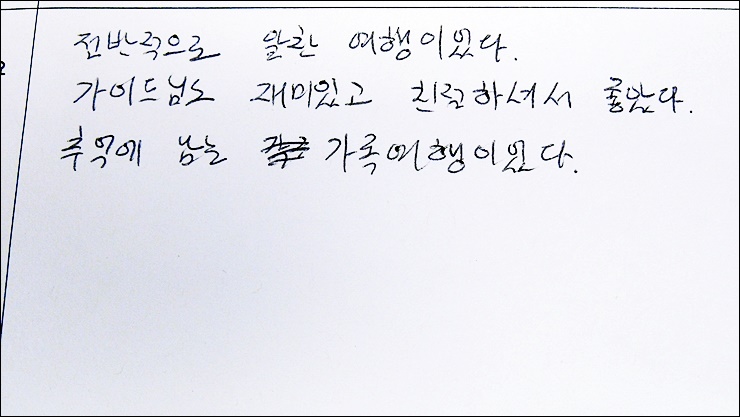 전반적으로 알찬 여행이었다.
가이드님도 재미있고 친절하셔서 좋았다.
추억에 남는 가족여행이었다.